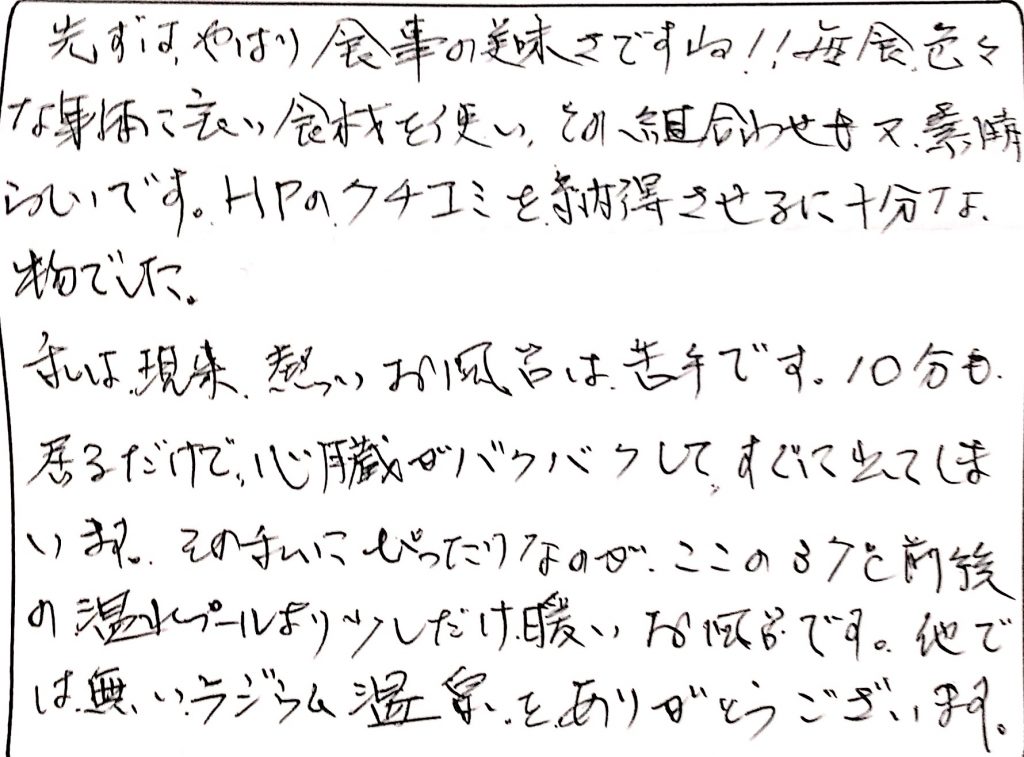 先ずは、やはり食事の美味さですね!!毎食、色々
な身体に良い食材を使い、その組合わせも又、素晴
らしいです。HPのクチコミを納得させるに十分な
物でした。
私は現来、熱いお風呂は苦手です。10分も
居るだけで、心臓がバクバクして、すぐに出てしま
います。その私にぴったりなのが、ここの37℃前後
の温水プールより少しだけ暖いお風呂です。他で
は無いラジウム温泉をありがとうございます。